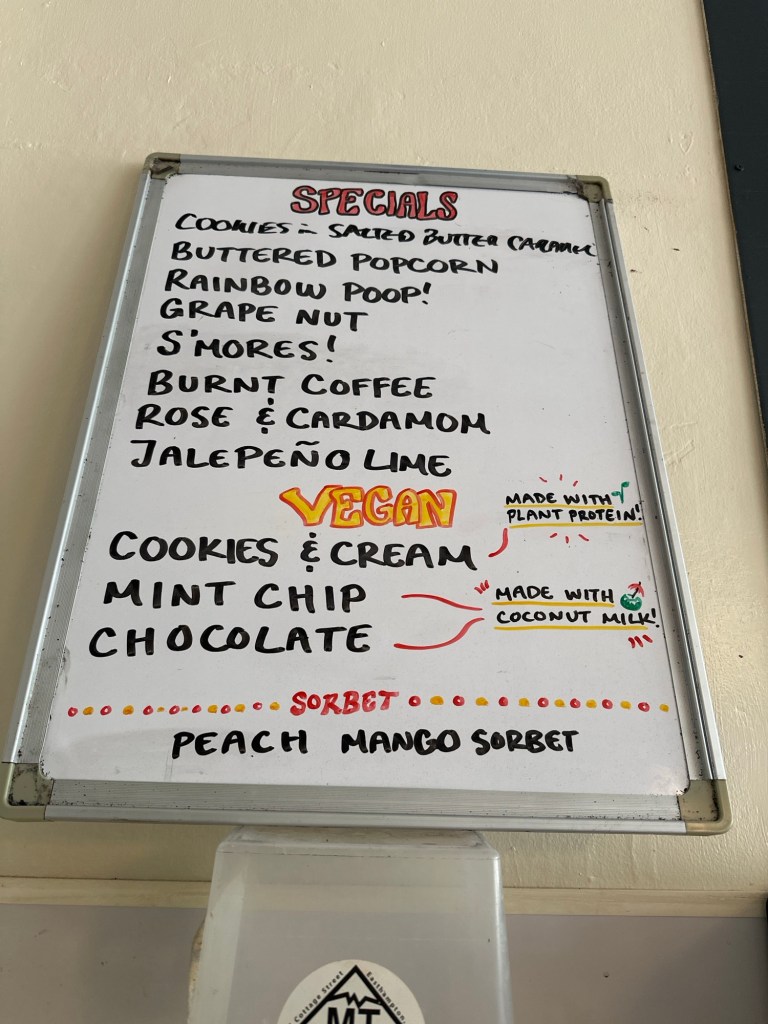 SPECIALS
COOKIES in SALTED BUTTER CARAMEL
BUTTERED POPCORN
RAINBOW POOP!
GRAPE NUT
S'MORES!
BURNT COFFEE
ROSE & CARDAMOM
JALEPEÑO LIME
VEGAN
MADE WITH
PLANT PROTEIN!
COOKIES & CREAM
MINT CHIP
MADE WITH
COCONUT MILK!
CHOCOLATE
SORBET
PEACH MANGO SORBET
Cottage Street
Easthampton
MT